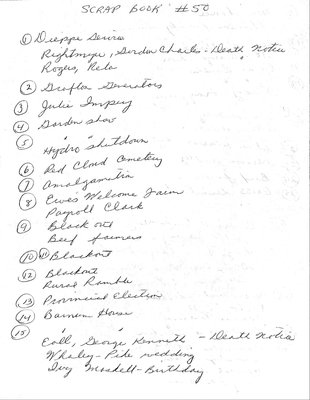 SCRAP BOOK #50
① Dieppe Desire
Rightmyre, Gordon Charles - Death Notice
Rogers, Reta
② Grafton Generators
③ Julie Impey
④ Garden show
⑤ " "
Hydro shutdown
⑥ Red Cloud Cemetery
⑦ Amalgamation
⑧ Ewes Welcome Farm
Payroll Clark
⑨ Black out
Beef farmers
⑩ ⑪ Blackout
⑫ Blackout
Rural Ramble
⑬ Provincial Election
⑭ Barnum House
⑮ " "
Coll, George Kenneth - Death Notice
Whaley - Pike wedding
Ivy Maskell - Birthday